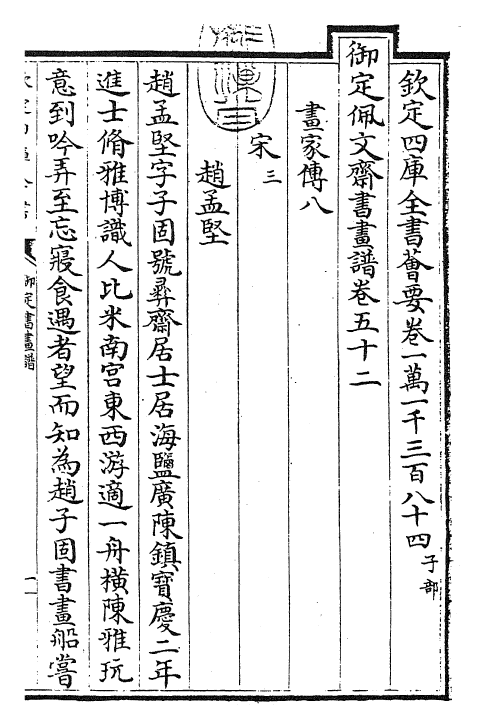 欽定四庫全書薈要卷一萬一千三百八十四子部
御定佩文齋書畫譜卷五十二
畫家傳八
宋三
趙孟堅
趙孟堅字子固號彛齋居士居海鹽廣陳鎮寶慶二年
進士脩雅博識人比米南宮東西游適一舟橫陳雅玩
意到吟弄至忘寢食遇者望而知為趙子固書畫船嘗
御定書畫譜